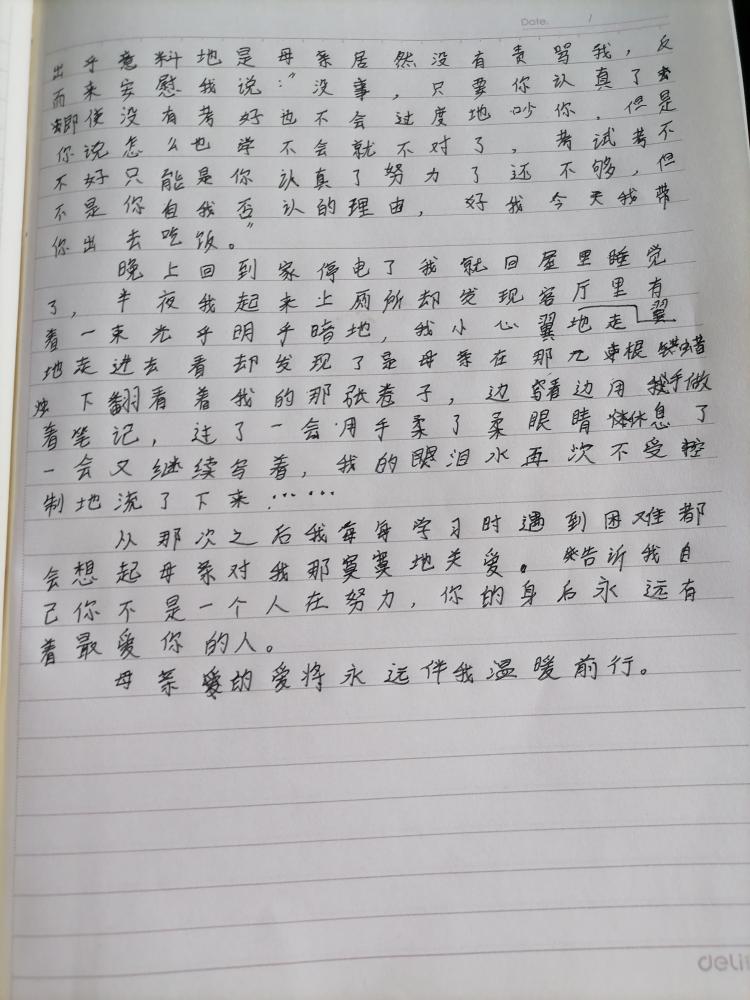 Date. /
出乎意料地是母亲居然没有责骂我，反
而来安慰我说："没事，只要你认真了去
即使没有考好也不会过度地吵你，但是
你说怎么也学不会就不对了，考试考不
不好只能是你认真了努力了还不够，但
不是你自我否认的理由，好我今天我带
你出去吃饭。"
晚上回到家停电了我就回屋里睡觉
了，半夜我起来上厕所却发现客厅里有
着一束光乎明乎暗地，我小心翼地走翼
地走进去看却发现了是母亲在那几根蜡
烛下翻看着我的那张卷子，边看边用手做
着笔记，过了一会用手柔了柔眼睛休息了
一会又继续写着，我的眼泪水再次不受控
制地流了下来……
从那次之后我每每学习时遇到困难都
会想起母亲对我那寞寞地关爱。告诉我自
己你不是一个人在努力，你的身后永远有
着最爱你的人。
母亲的爱将永远伴我温暖前行。
deli